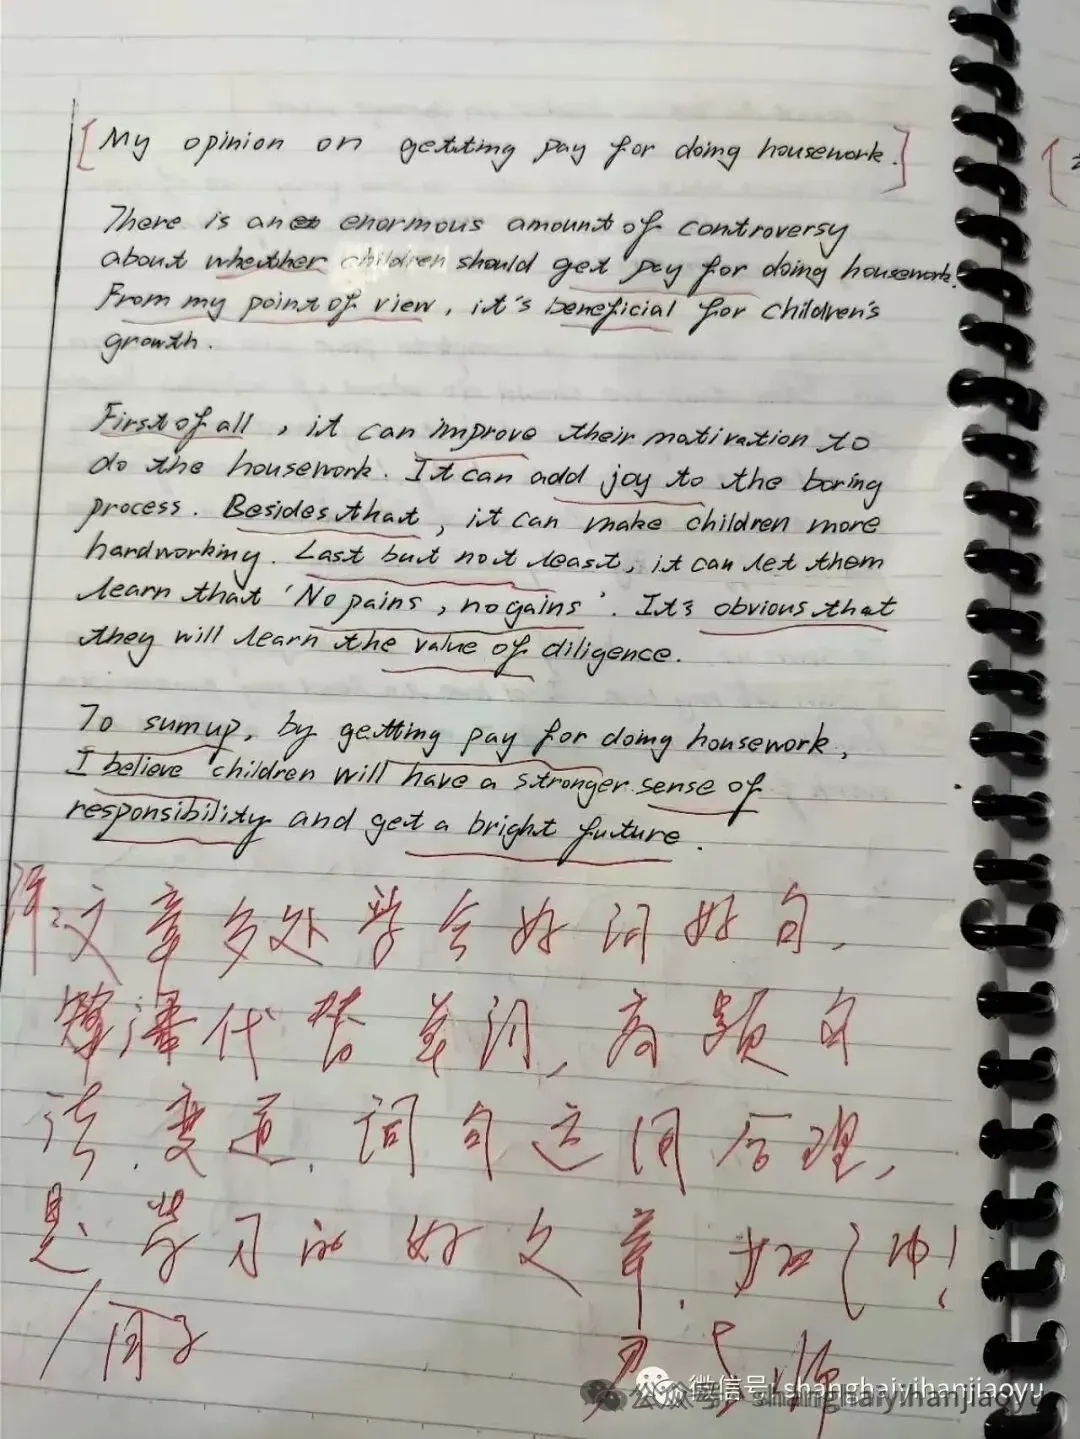 My opinion on getting pay for doing housework.
There is an enormous amount of controversy
about whether children should get pay for doing housework.
From my point of view, it's beneficial for children's
growth.
First of all, it can improve their motivation to
do the housework. It can add joy to the boring
process. Besides that, it can make children more
hardworking. Last but not least, it can let them
learn that 'No pains, no gains'. It's obvious that
they will learn the value of diligence.
To sum up, by getting pay for doing housework,
I believe children will have a stronger sense of
responsibility and get a bright future.
评:文章多处学会好词好句,
代替单词,高频句
词句运用合理,
是学习的好文章.加油!
师
微信号: shanghaiyihanjiaoyu
公众号 · shanghaiyihanjiaoyu